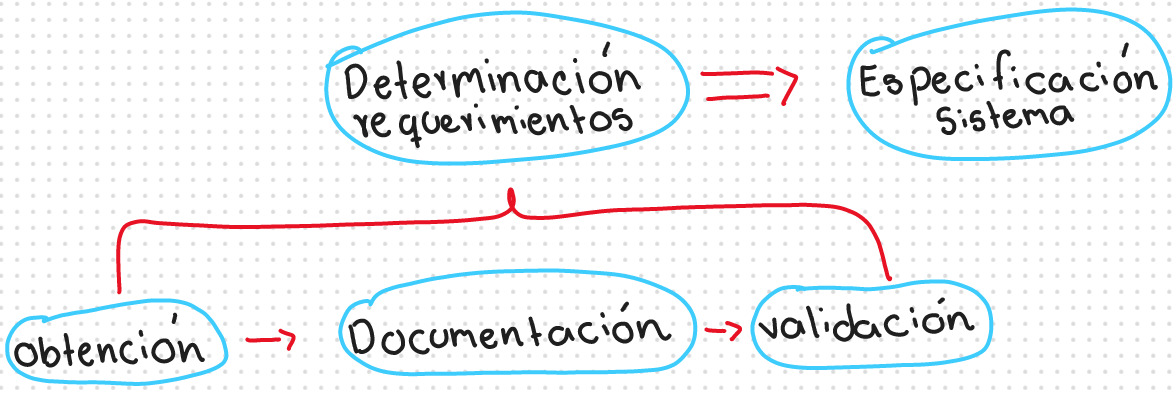 Determinación
requerimientos
Especificación
sistema
obtención
Documentación
validación